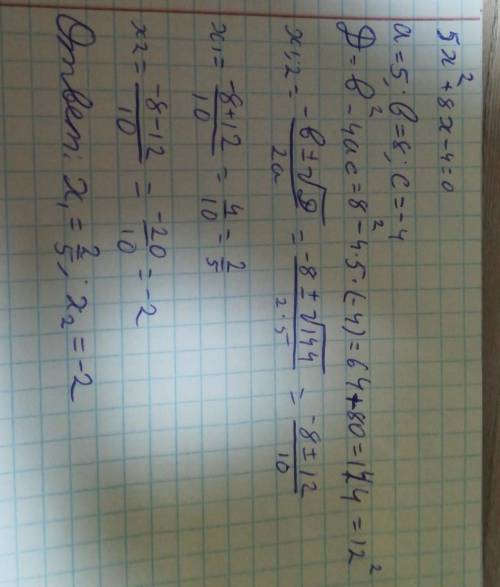 5x² + 8x - 4 = 0
a = 5; b = 8; c = -4
D = b² - 4ac = 8² - 4·5·(-4) = 64 + 80 = 144 = 12²
x₁,₂ = (-b ± √D)/2a = (-8 ± √144)/2·5 = (-8 ± 12)/10
x₁ = (-8 + 12)/10 = 4/10 = 2/5
x₂ = (-8 - 12)/10 = -20/10 = -2
Ответ: x₁ = 2/5; x₂ = -2